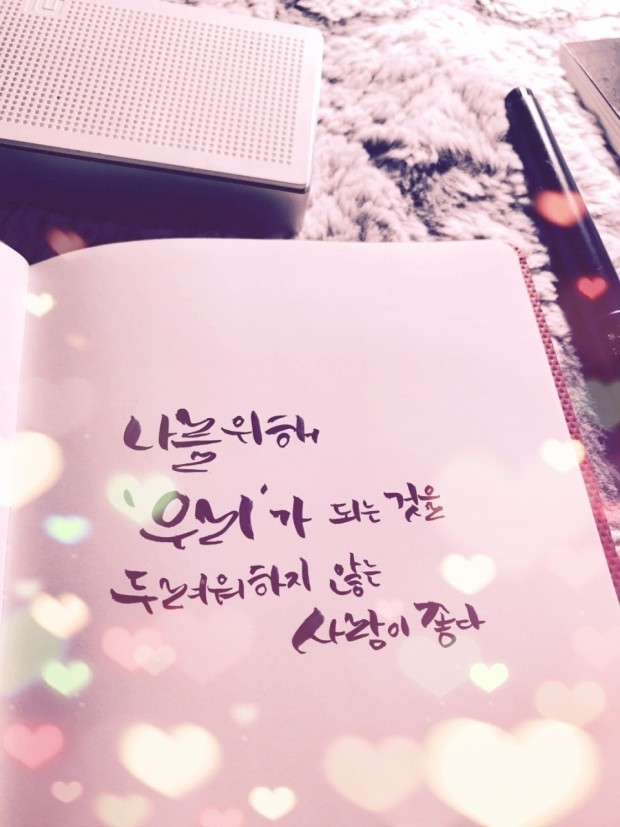 나를위해
'우리'가 되는 것을
두려워하지 않는
사람이 좋다